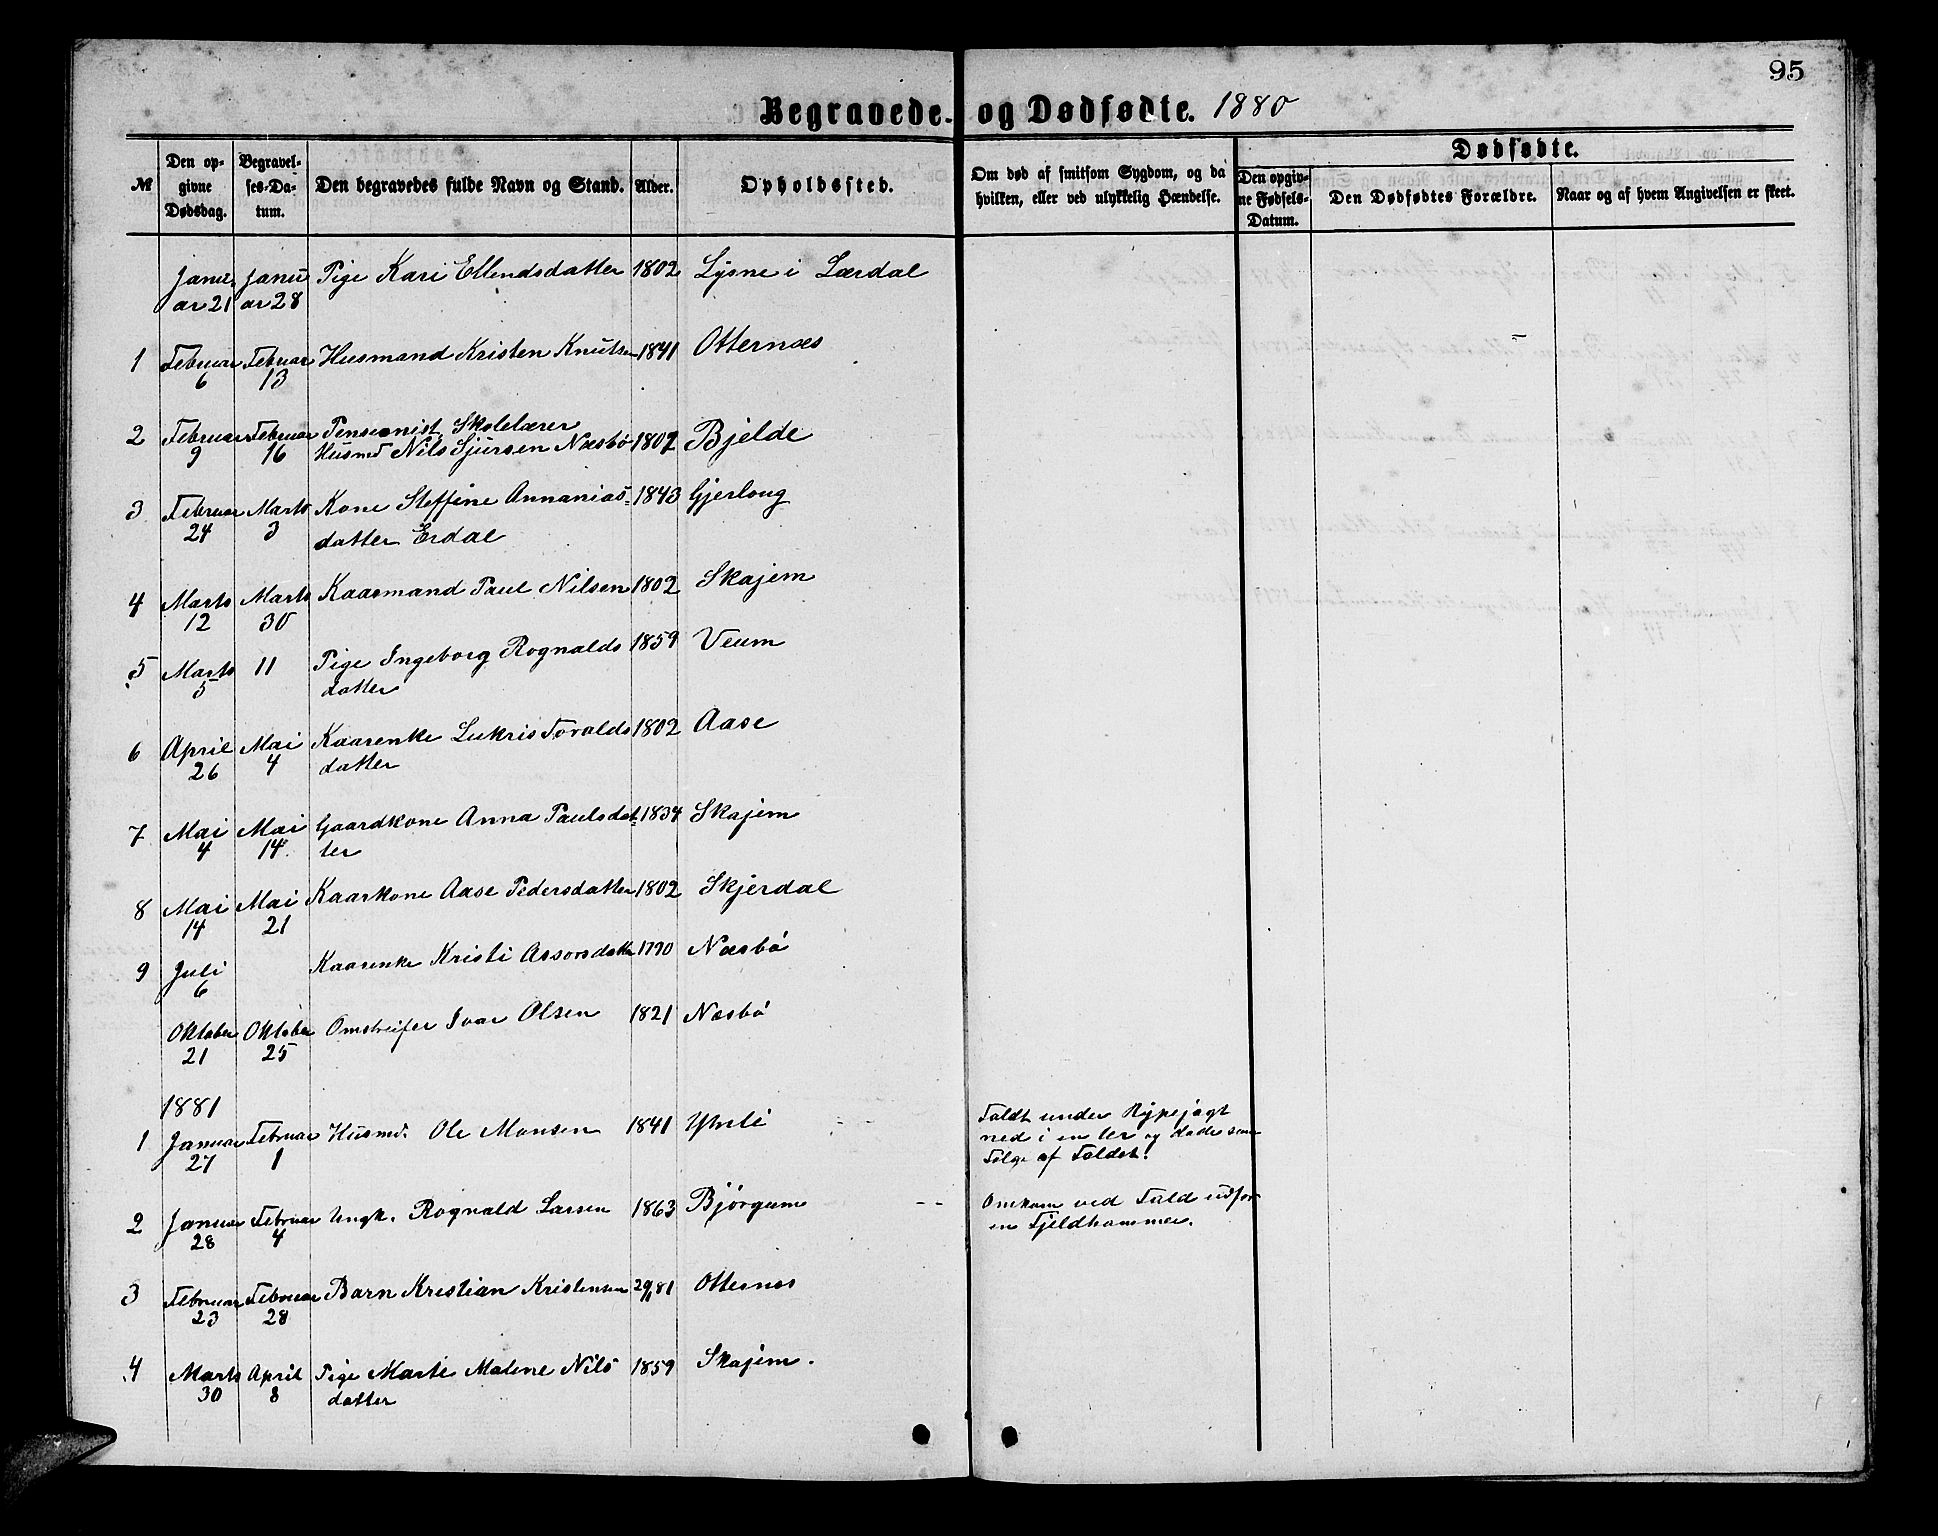 95
Begravede og Dødfødte. 1880
Dødfødte.
№
Den opgivne Dødsdag.
Begravelses-Datum.
Den begravedes fulde Navn og Stand.
Alder.
Opholdssted.
Om død af smitsom Sygdom, og da hvilken, eller ved ulykkelig Hændelse.
Den opgivne Fødsels-Datum.
Den Dødfødtes Forældre.
Naar og af hvem Angivelsen er skeet.
Januar 21 Januar 28 Pige Kari Ellendsdatter 1802 Lysne i Lærdal
1 Februar 6 Februar 13 Husmand Kristen Knutsen 1841 Otternæs
2 Februar 9 Februar 16 Pensionist, Skolelærer
Husmd Nils Sjursen Næsbø 1802 Bjelde
3 Februar 24 Marts 3 Kone Steffine Annanias- 1843 Gjerloug
datter Erdal
4 Marts 12 Marts 30 Kaarmand Paul Nilsen 1802 Skajem
5 Marts 5 11 Pige Ingeborg Rognalds 1859 Veum
datter
6 April 26 Mai 4 Kaarenke Lukris Toralds 1802 Aase
datter
7 Mai 4 Mai 14 Gaardkone Anna Paulsdat- 1834 Skajem
ter
8 Mai 14 Mai 21 Kaarkone Aase Pedersdatter 1802 Skjerdal
9 Juli 6 Kaarenke Kristi Assorsdatter 1790 Næsbø
Oktober 21 Oktober 25 Omstreifer Ivar Olsen 1821 Næsbø
1881
1 Januar 27 Februar 1 Husmd. Ole Monsen 1841 Ytreli Faldt under Rypejagt
ned i en Ur og døde som
Følge af Faldet.
2 Januar 28 Februar 4 Ungk. Rognald Larsen 1863 Bjørgum Omkom ved Fald udfor
en Fjeldhammer.
3 Februar 23 Februar 28 Barn Kristian Kristensen 81 Otternes
4 Marts 30 April 8 Pige Marte Malene Nils 1859 Skajem.
datter